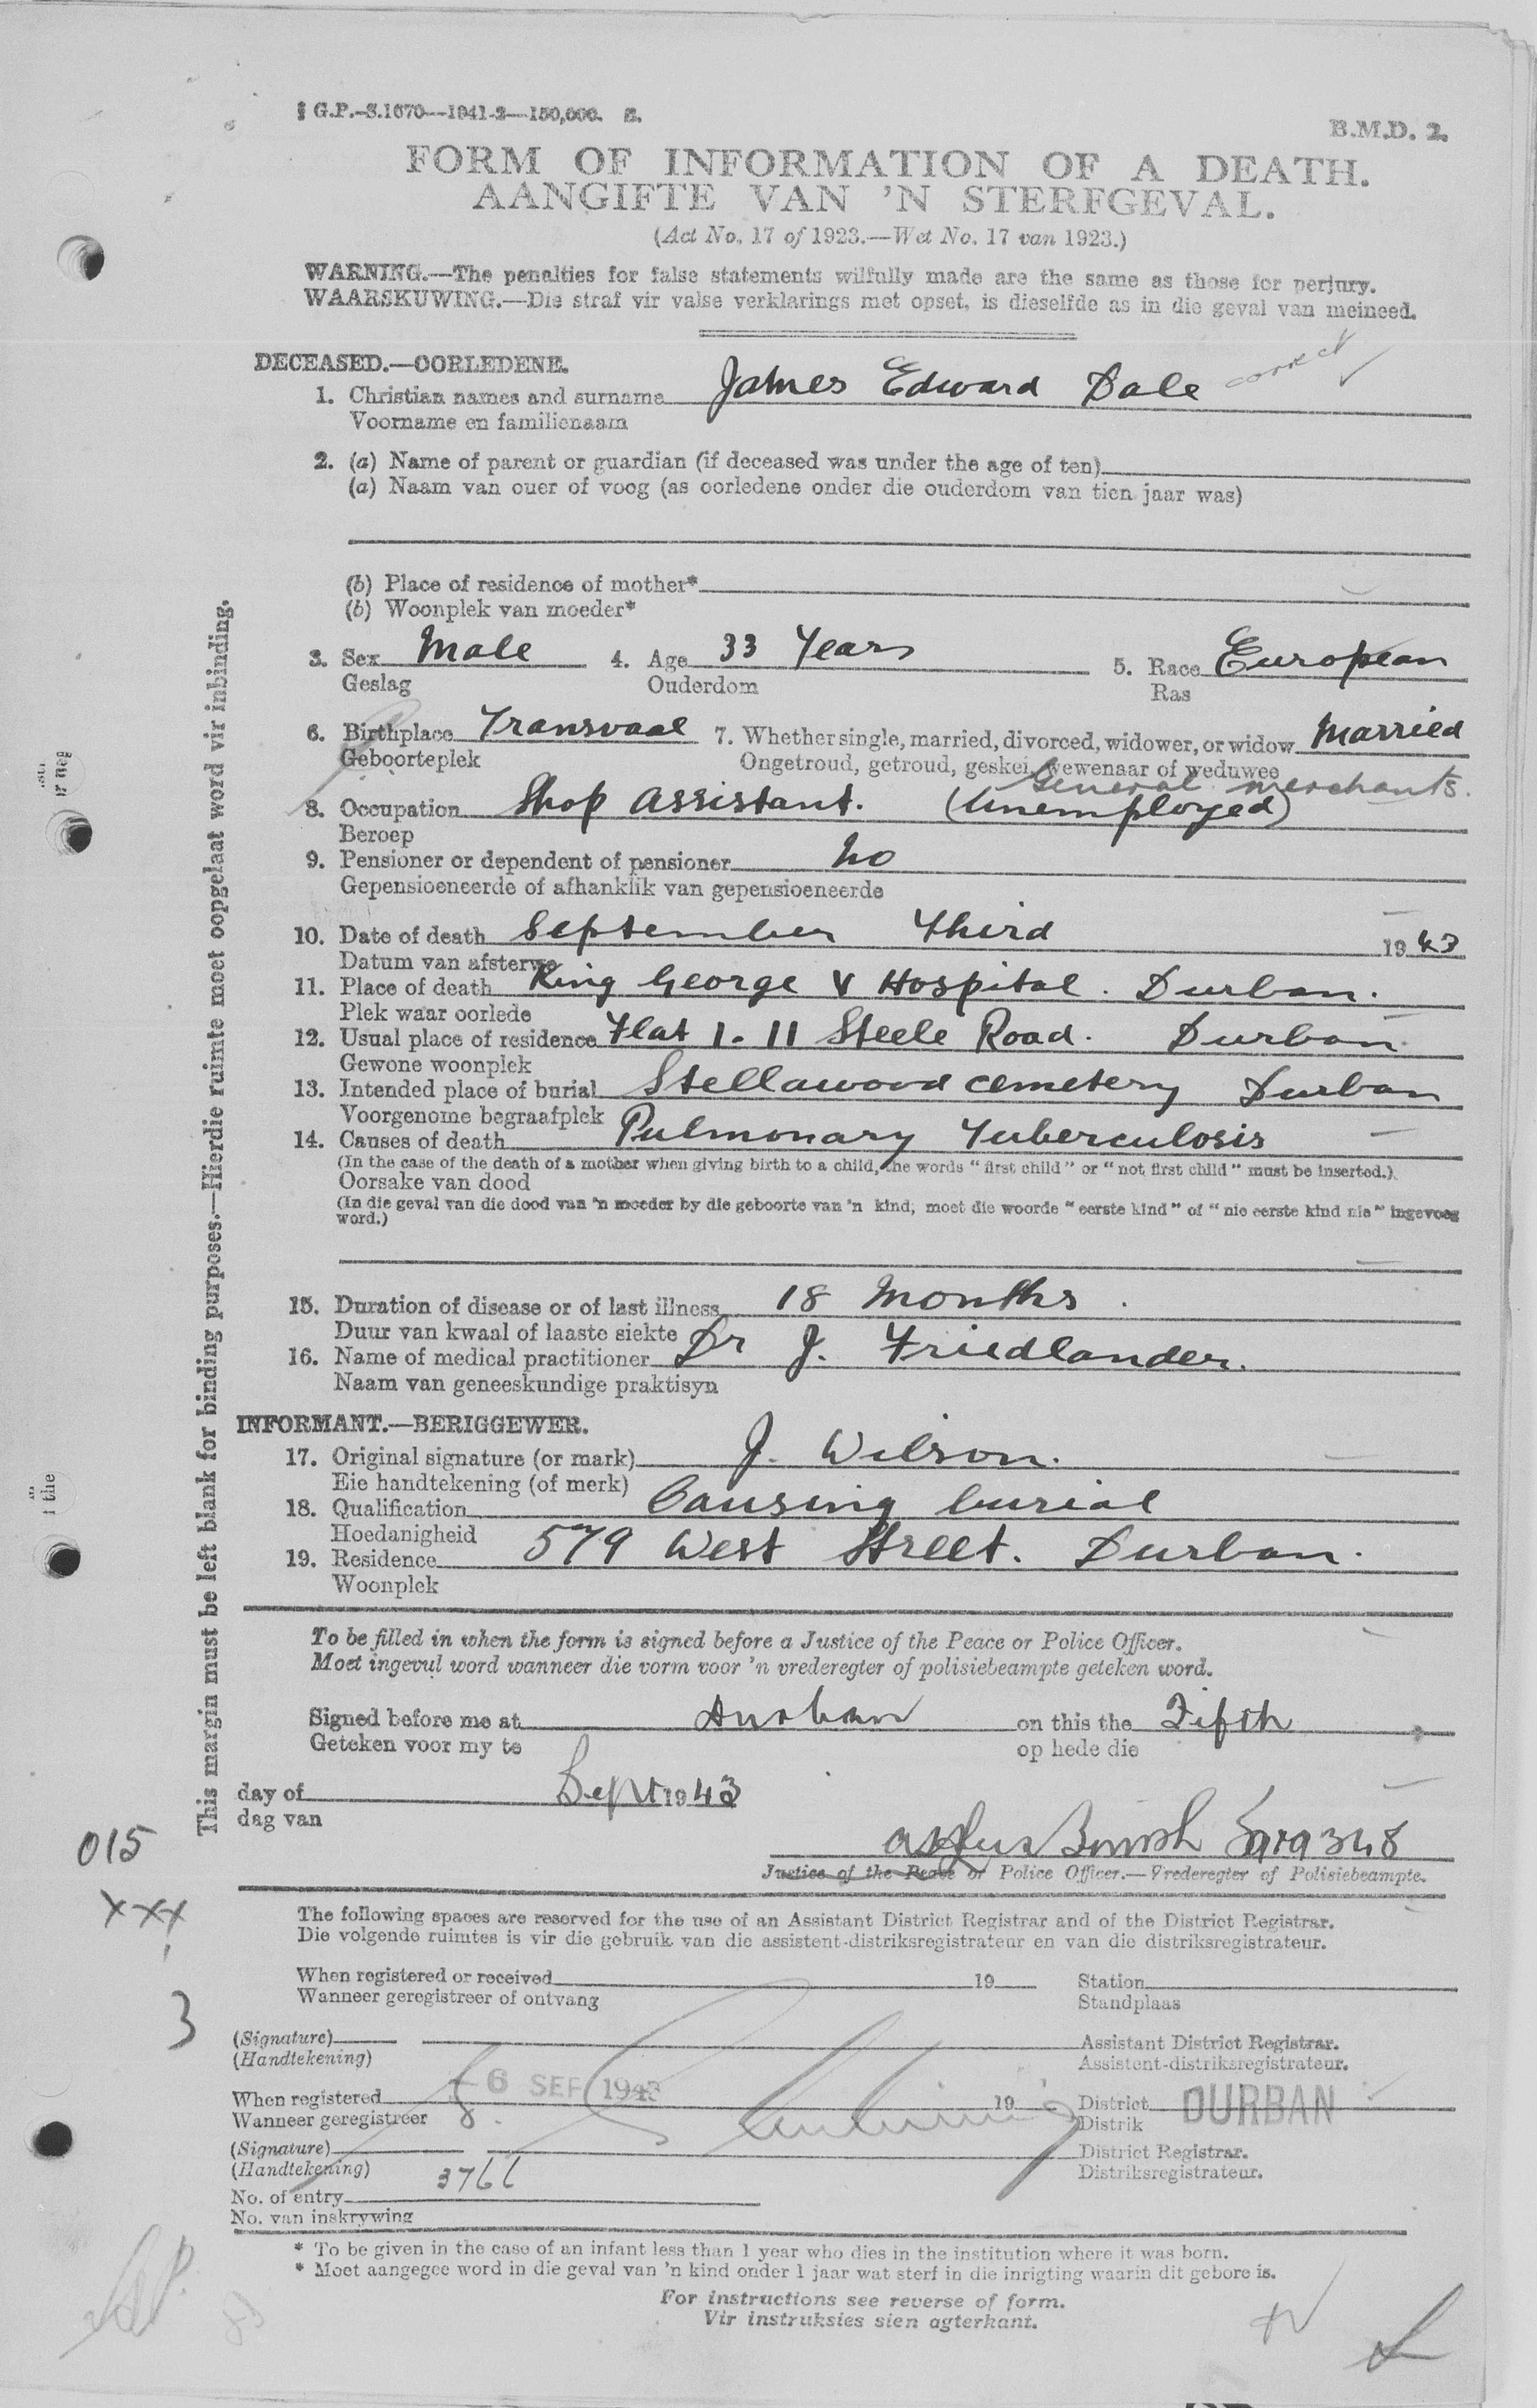 G.P.-S.1670—1941-2—150,000. S.
B.M.D. 2.
FORM OF INFORMATION OF A DEATH.
AANGIFTE VAN 'N STERFGEVAL.
(Act No. 17 of 1923.—Wet No. 17 van 1923.)
WARNING.—The penalties for false statements wilfully made are the same as those for perjury.
WAARSKUWING.—Die straf vir valse verklarings met opset, is dieselfde as in die geval van meineed.
DECEASED.—OORLEDENE.
correct
1. Christian names and surname James Edward Dale
Voorname en familienaam
2. (a) Name of parent or guardian (if deceased was under the age of ten)
(a) Naam van ouer of voog (as oorledene onder die ouderdom van tien jaar was)
(b) Place of residence of mother*
(b) Woonplek van moeder*
3. Sex Male 4. Age 33 Years 5. Race European
Geslag Ouderdom Ras
6. Birthplace Transvaal 7. Whether single, married, divorced, widower, or widow Married
Geboorteplek Ongetroud, getroud, geskei, wewenaar of weduwee
General merchants.
8. Occupation Shop Assistant. (Unemployed)
Beroep
9. Pensioner or dependent of pensioner No
Gepensioeneerde of afhanklik van gepensioeneerde
10. Date of death September Third 1943
Datum van afsterwe
11. Place of death King George V Hospital. Durban.
Plek waar oorlede
12. Usual place of residence Flat 1. 11 Steele Road. Durban.
Gewone woonplek
13. Intended place of burial Stellawood cemetery Durban
Voorgenome begraafplek
14. Causes of death Pulmonary Tuberculosis
(In the case of the death of a mother when giving birth to a child, the words "first child" or "not first child" must be inserted.)
Oorsake van dood
(In die geval van die dood van 'n moeder by die geboorte van 'n kind, moet die woorde "eerste kind" of "nie eerste kind nie" ingevoeg
word.)
15. Duration of disease or of last illness 18 Months.
Duur van kwaal of laaste siekte
16. Name of medical practitioner Dr J. Friedlander.
Naam van geneeskundige praktisyn
INFORMANT.—BERIGGEWER.
17. Original signature (or mark) J. Wilson.
Eie handtekening (of merk)
18. Qualification Causing burial
Hoedanigheid
19. Residence 579 West Street. Durban.
Woonplek
This margin must be left blank for binding purposes.—Hierdie ruimte moet oopgelaat word vir inbinding.
To be filled in when the form is signed before a Justice of the Peace or Police Officer.
Moet ingevul word wanneer die vorm voor 'n vrederegter of polisiebeampte geteken word.
Signed before me at Durban on this the Fifth
Geteken voor my te op hede die
day of Sept 1943
dag van
Justice of the Peace or Police Officer.—Vrederegter of Polisiebeampte.
015
XXX
3
The following spaces are reserved for the use of an Assistant District Registrar and of the District Registrar.
Die volgende ruimtes is vir die gebruik van die assistent-distriksregistrateur en van die distriksregistrateur.
When registered or received 19 Station
Wanneer geregistreer of ontvang Standplaas
(Signature) Assistant District Registrar.
(Handtekening) Assistent-distriksregistrateur.
When registered 6 SEP 1943 19 District DURBAN
Wanneer geregistreer Distrik
(Signature) District Registrar.
(Handtekening) Distriksregistrateur.
No. of entry 3766
No. van inskrywing
* To be given in the case of an infant less than 1 year who dies in the institution where it was born.
* Moet aangegee word in die geval van 'n kind onder 1 jaar wat sterf in die inrigting waarin dit gebore is.
For instructions see reverse of form.
Vir instruksies sien agterkant.